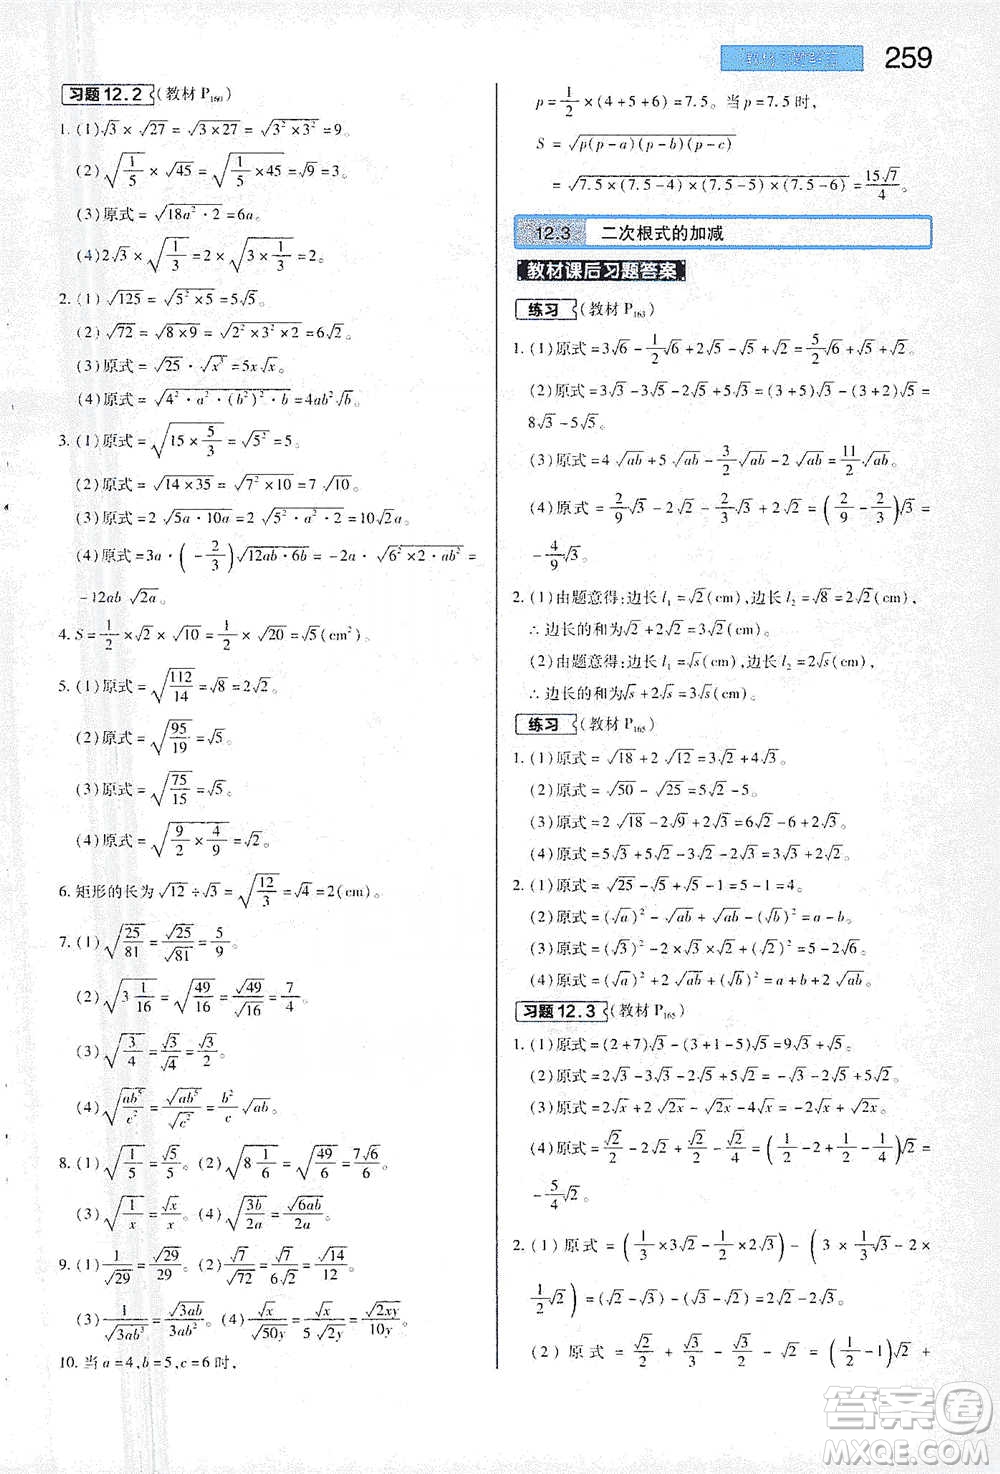 259
习题12.2(教材P₁₆₀)
1. (1)√3×√27=√(3×27)=√(3²×3²)=9。
(2)√(1/5)×√45=√(1/5×45)=√9=3。
(3)原式=√(18a²·2)=6a。
(4)2√3×√(1/3)=2√(3×1/3)=2。
2. (1)√125=√(5²×5)=5√5。
(2)√72=√(8×9)=√(2²×3²×2)=6√2。
(3)原式=√25·√x³=5x√x。
(4)原式=√(4²·a²·(b²)²·b)=4ab²√b。
3. (1)原式=√(15×5/3)=√5²=5。
(2)原式=√(14×35)=√(7²×10)=7√10。
(3)原式=2√(5a·10a)=2√(5²·a²·2)=10√2a。
(4)原式=3a·(-2/3)√(12ab·6b)=-2a·√(6²×2·ab²)=
-12ab√(2a)。
4. S=1/2×√2×√10=1/2×√20=√5(cm²)。
5. (1)原式=√(112/14)=√8=2√2。
(2)原式=√(95/19)=√5。
(3)原式=√(75/15)=√5。
(4)原式=√(9/2×4/9)=√2。
6. 矩形的长为√12÷√3=√(12/3)=√4=2(cm)。
7. (1)√(25/81)=√25/√81=5/9。
(2)√(3 1/16)=√(49/16)=√49/√16=7/4。
(3)√(3/4)=√3/√4=√3/2。
(4)√(ab⁵/c²)=√ab⁵/√c²=b²/c √ab。
8. (1)√(1/5)=√5/5。(2)√(8 1/6)=√(49/6)=7√6/6。
(3)√(1/x)=√x/x。(4)√(3b/2a)=√6ab/2a。
9. (1)1/√29=√29/29。(2)√7/√72=√7/6√2=√14/12。
(3)1/√3ab³=√3ab/3ab²。(4)√x/√50y=√x/5√2y=√2xy/10y。
10. 当a=4,b=5,c=6时,
p=1/2×(4+5+6)=7.5。当p=7.5时,
S=√(p(p-a)(p-b)(p-c))
=√(7.5×(7.5-4)×(7.5-5)×(7.5-6))=15√7/4。
12.3 二次根式的加减
教材课后习题答案
练习(教材P₁₆₃)
1. (1)原式=3√6-1/2√6+2√5-√5+√2=5/2√6+√5+√2。
(2)原式=3√3-3√5-2√5+5√3=(3+5)√3-(3+2)√5=
8√3-5√5。
(3)原式=4√ab+5√ab-3/2√ab-2√ab=11/2√ab。
(4)原式=2/9√3-2√2-2/3√3+2√2=(2/9-2/3)√3=
-4/9√3。
2. (1)由题意得:边长l₁=√2(cm),边长l₂=√8=2√2(cm),
∴边长的和为√2+2√2=3√2(cm)。
(2)由题意得:边长l₁=√s(cm),边长l₂=2√s(cm),
∴边长的和为√s+2√s=3√s(cm)。
练习(教材P₁₆₅)
1. (1)原式=√18+2√12=3√2+4√3。
(2)原式=√50-√25=5√2-5。
(3)原式=2√18-2√9+2√2+3√2。
(4)原式=5√3+5√2-2√3-2√2=3√3+3√2。
2. (1)原式=√25-√5+√5-1=5-1=4。
(2)原式=(√a)²-√ab+√ab-(√b)²=a-b。
(3)原式=(√5)²-2×√5×√2+(√2)²=5-2√10+2。
(4)原式=(√a)²+2√ab+(√b)²=a+b+2√ab。
习题12.3(教材P₁₆₅)
1. (1)原式=(2+7)√3+(-1+3-5)√5=9√3-3√5。
(2)原式=2√3-3√3-√2+2√5=-√3-√2+2√5。
(3)原式=2√x-3√x+2√2x-2√2x=-√x。
(4)原式=√2/2-2√2+√2/2-√2/4=(1/2-2+1/2-1/4)√2=
-5/4√2。
2. (1)原式=(1/3×3√2-1/2×2√3)-(3×1/3√3-
1/2√2)=(√2-√3)-(√3-1/2√2)=3/2√2-2√3。
(2)原式=√2/2+√3/3-√2+2√3=(1/2-1)√2+
答案圈
MXQE.COM